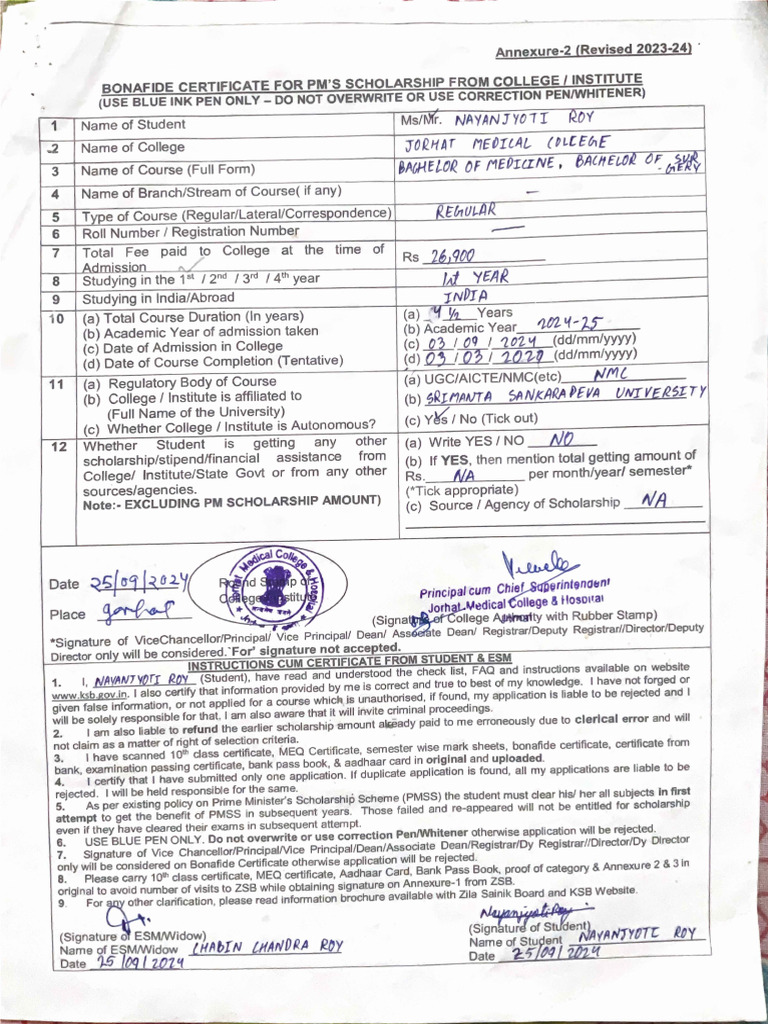 Annexure-2 (Revised 2023-24)
BONAFIDE CERTIFICATE FOR PM'S SCHOLARSHIP FROM COLLEGE / INSTITUTE
(USE BLUE INK PEN ONLY – DO NOT OVERWRITE OR USE CORRECTION PEN/WHITENER)
1 Name of Student Ms/Mr. NAYANJYOTI ROY
2 Name of College JORHAT MEDICAL COLLEGE
3 Name of Course (Full Form) BACHELOR OF MEDICINE, BACHELOR OF SURGERY
4 Name of Branch/Stream of Course( if any) —
5 Type of Course (Regular/Lateral/Correspondence) REGULAR
6 Roll Number / Registration Number —
7 Total Fee paid to College at the time of
Admission Rs 26,900
8 Studying in the 1st / 2nd / 3rd / 4th year 1st YEAR
9 Studying in India/Abroad INDIA
10 (a) Total Course Duration (In years) (a) 4 1/2 Years
(b) Academic Year of admission taken (b) Academic Year 2024-25
(c) Date of Admission in College (c) 03 / 09 / 2024 (dd/mm/yyyy)
(d) Date of Course Completion (Tentative) (d) 03 / 03 / (dd/mm/yyyy)
11 (a) Regulatory Body of Course (a) UGC/AICTE/NMC(etc) NMC
(b) College / Institute is affiliated to (b) SRIMANTA SANKARADEVA UNIVERSITY
(Full Name of the University)
(c) Whether College / Institute is Autonomous? (c) Yes / No (Tick out)
12 Whether Student is getting any other (a) Write YES / NO NO
scholarship/stipend/financial assistance from (b) If YES, then mention total getting amount of
College/ Institute/State Govt or from any other Rs. NA per month/year/ semester*
sources/agencies. (*Tick appropriate)
Note:- EXCLUDING PM SCHOLARSHIP AMOUNT) (c) Source / Agency of Scholarship NA
Date 25/09/2024
Round Stamp of
College/Institute
Jorhat Medical College & Hospital
Principal cum Chief Superintendent
Jorhat Medical College & Hospital
Place Jorhat
(Signature of College Authority with Rubber Stamp)
*Signature of ViceChancellor/Principal/ Vice Principal/ Dean/ Associate Dean/ Registrar/Deputy Registrar//Director/Deputy
Director only will be considered.`For' signature not accepted.
INSTRUCTIONS CUM CERTIFICATE FROM STUDENT & ESM
1. I, NAYANJYOTI ROY (Student), have read and understood the check list, FAQ and instructions available on website
www.ksb.gov.in. I also certify that information provided by me is correct and true to best of my knowledge. I have not forged or
given false information, or not applied for a course which is unauthorised, if found, my application is liable to be rejected and I
will be solely responsible for that. I am also aware that it will invite criminal proceedings.
2. I am also liable to refund the earlier scholarship amount already paid to me erroneously due to clerical error and will
not claim as a matter of right of selection criteria.
3. I have scanned 10th class certificate, MEQ Certificate, semester wise mark sheets, bonafide certificate, certificate from
bank, examination passing certificate, bank pass book, & aadhaar card in original and uploaded.
4. I certify that I have submitted only one application. If duplicate application is found, all my applications are liable to be
rejected. I will be held responsible for the same.
5. As per existing policy on Prime Minister's Scholarship Scheme (PMSS) the student must clear his/ her all subjects in first
attempt to get the benefit of PMSS in subsequent years. Those failed and re-appeared will not be entitled for scholarship
even if they have cleared their exams in subsequent attempt.
6. USE BLUE PEN ONLY. Do not overwrite or use correction Pen/Whitener otherwise application will be rejected.
7. Signature of Vice Chancellor/Principal/Vice Principal/Dean/Associate Dean/Registrar/Dy Registrar//Director/Dy Director
only will be considered on Bonafide Certificate otherwise application will be rejected.
8. Please carry 10th class certificate, MEQ certificate, Aadhaar Card, Bank Pass Book, proof of category & Annexure 2 & 3 in
original to avoid number of visits to ZSB while obtaining signature on Annexure-1 from ZSB.
9. For any other clarification, please read information brochure available with Zila Sainik Board and KSB Website.
Nayanjyoti Roy
(Signature of ESM/Widow) (Signature of Student)
Name of ESM/Widow CHABIN CHANDRA ROY Name of Student NAYANJYOTI ROY
Date 25/09/2024 Date 25/09/2024